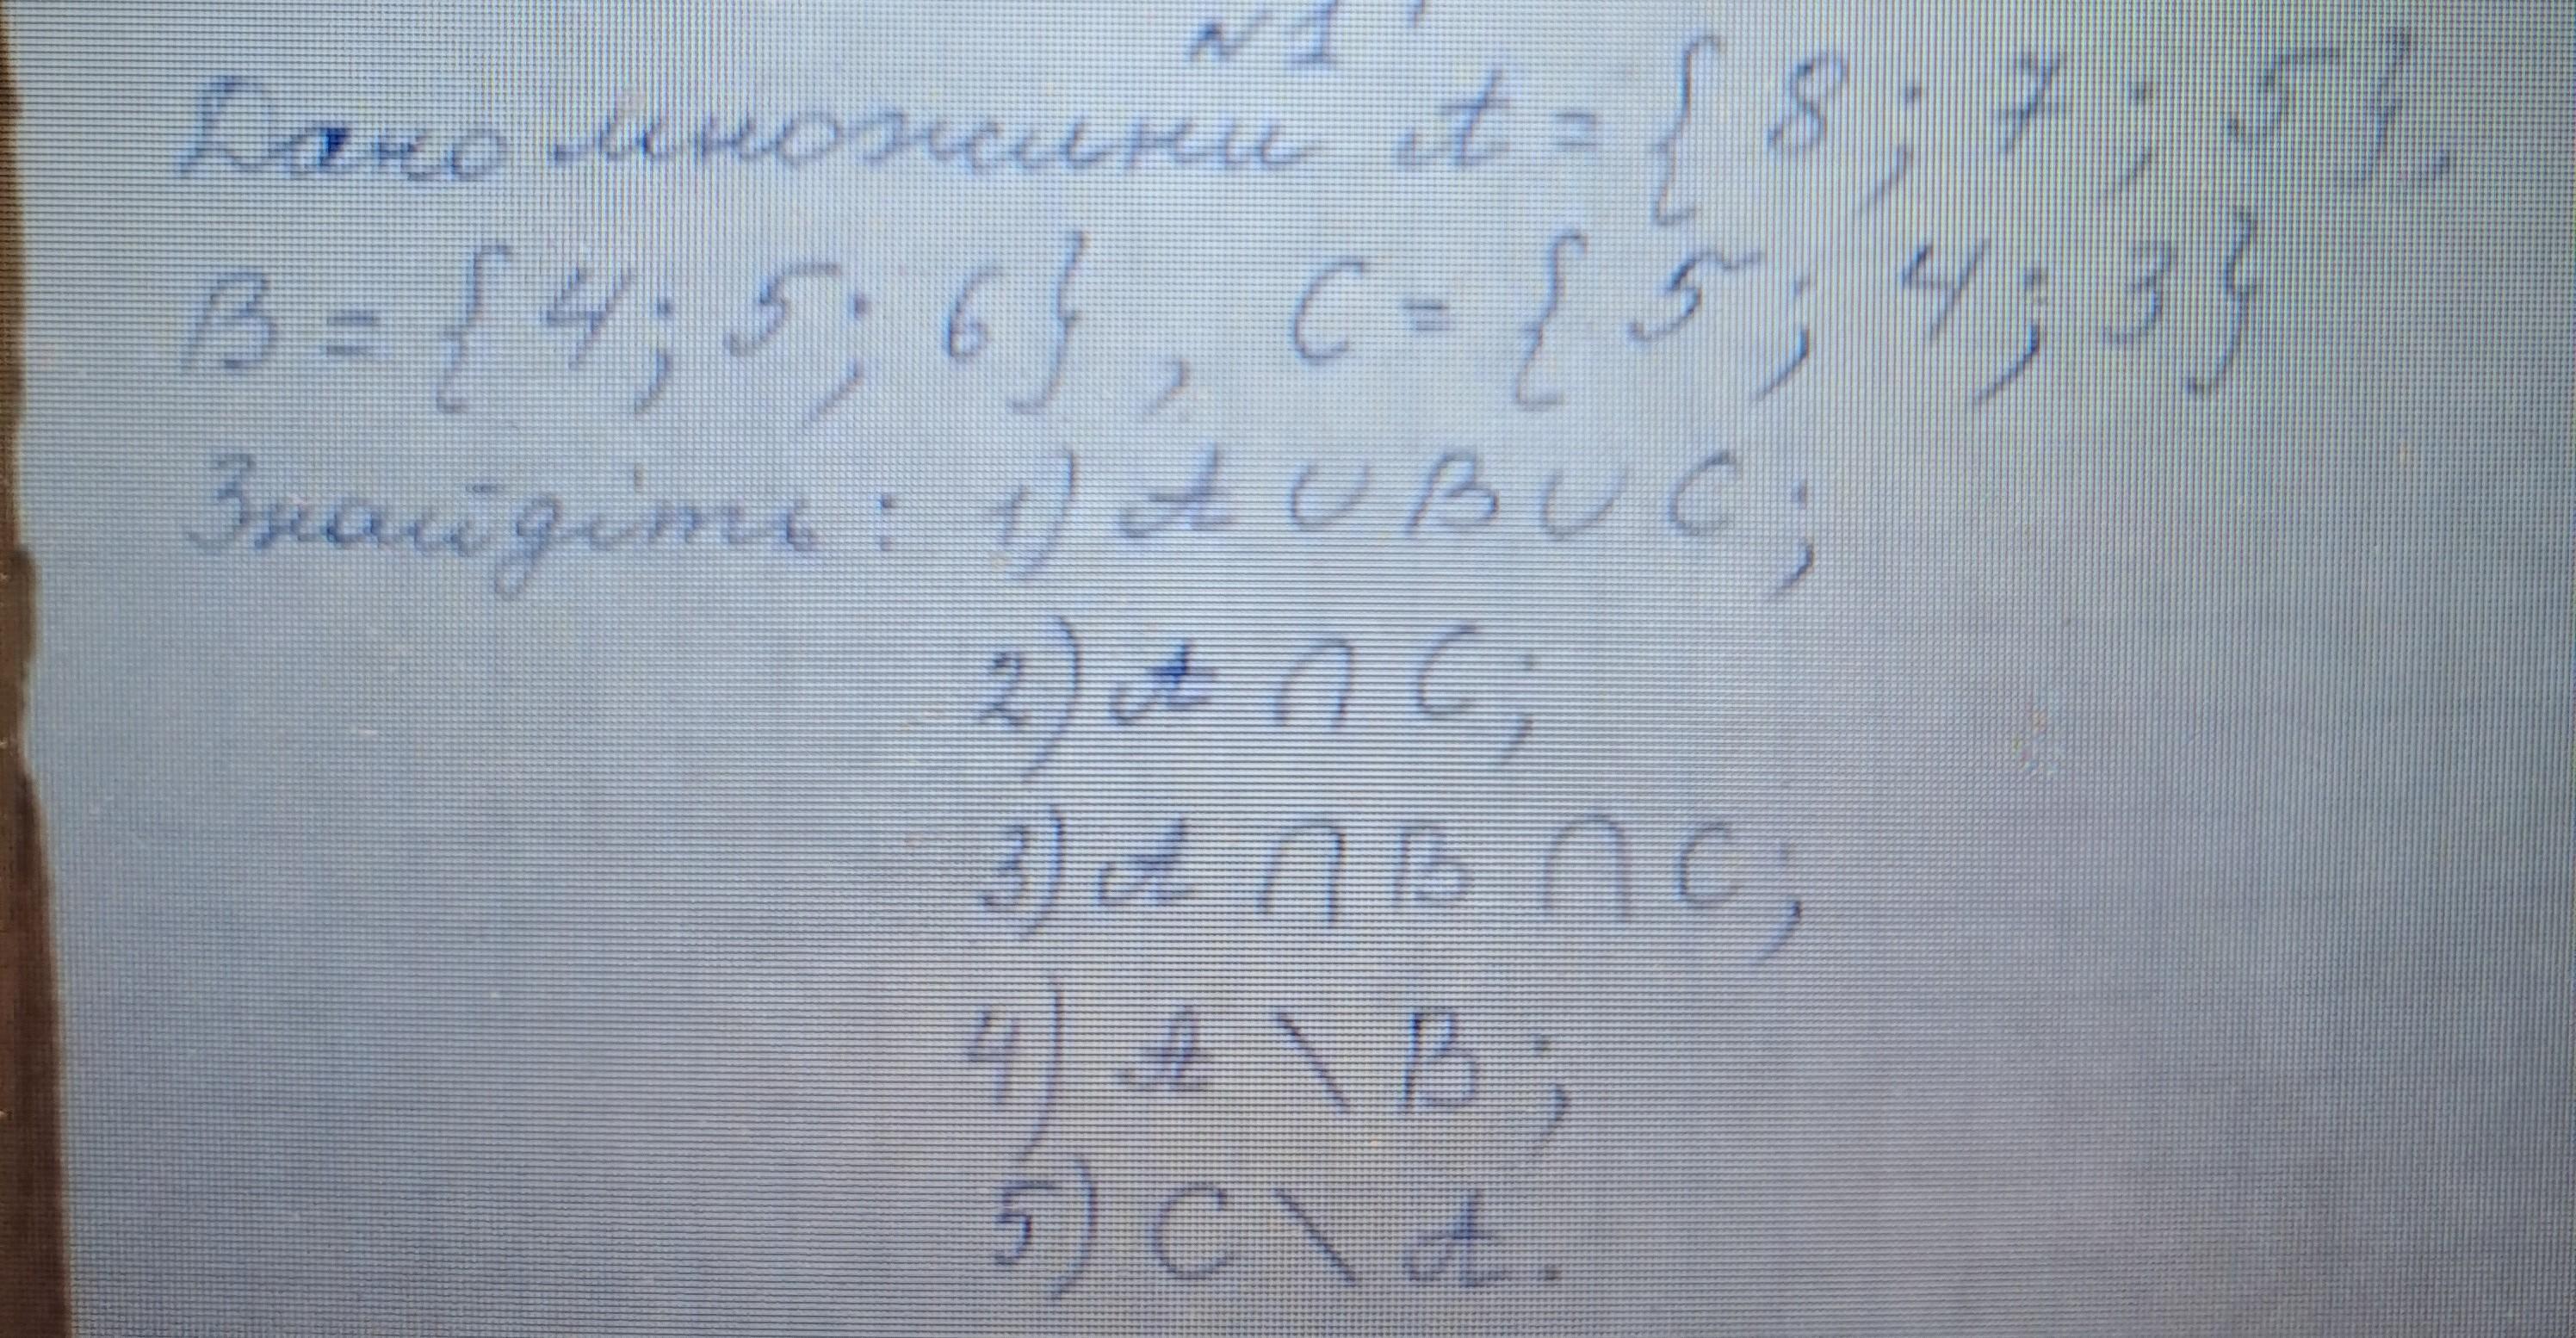 №1
Дано множини A = { 8 ; 7 ; 5 },
B = { 4 ; 5 ; 6 } , C = { 5 ; 4 ; 3 }
Знайдіть : 1) A ∪ B ∪ C ;
2) A ∩ C ;
3) A ∩ B ∩ C ;
4) A \ B ;
5) C \ A .